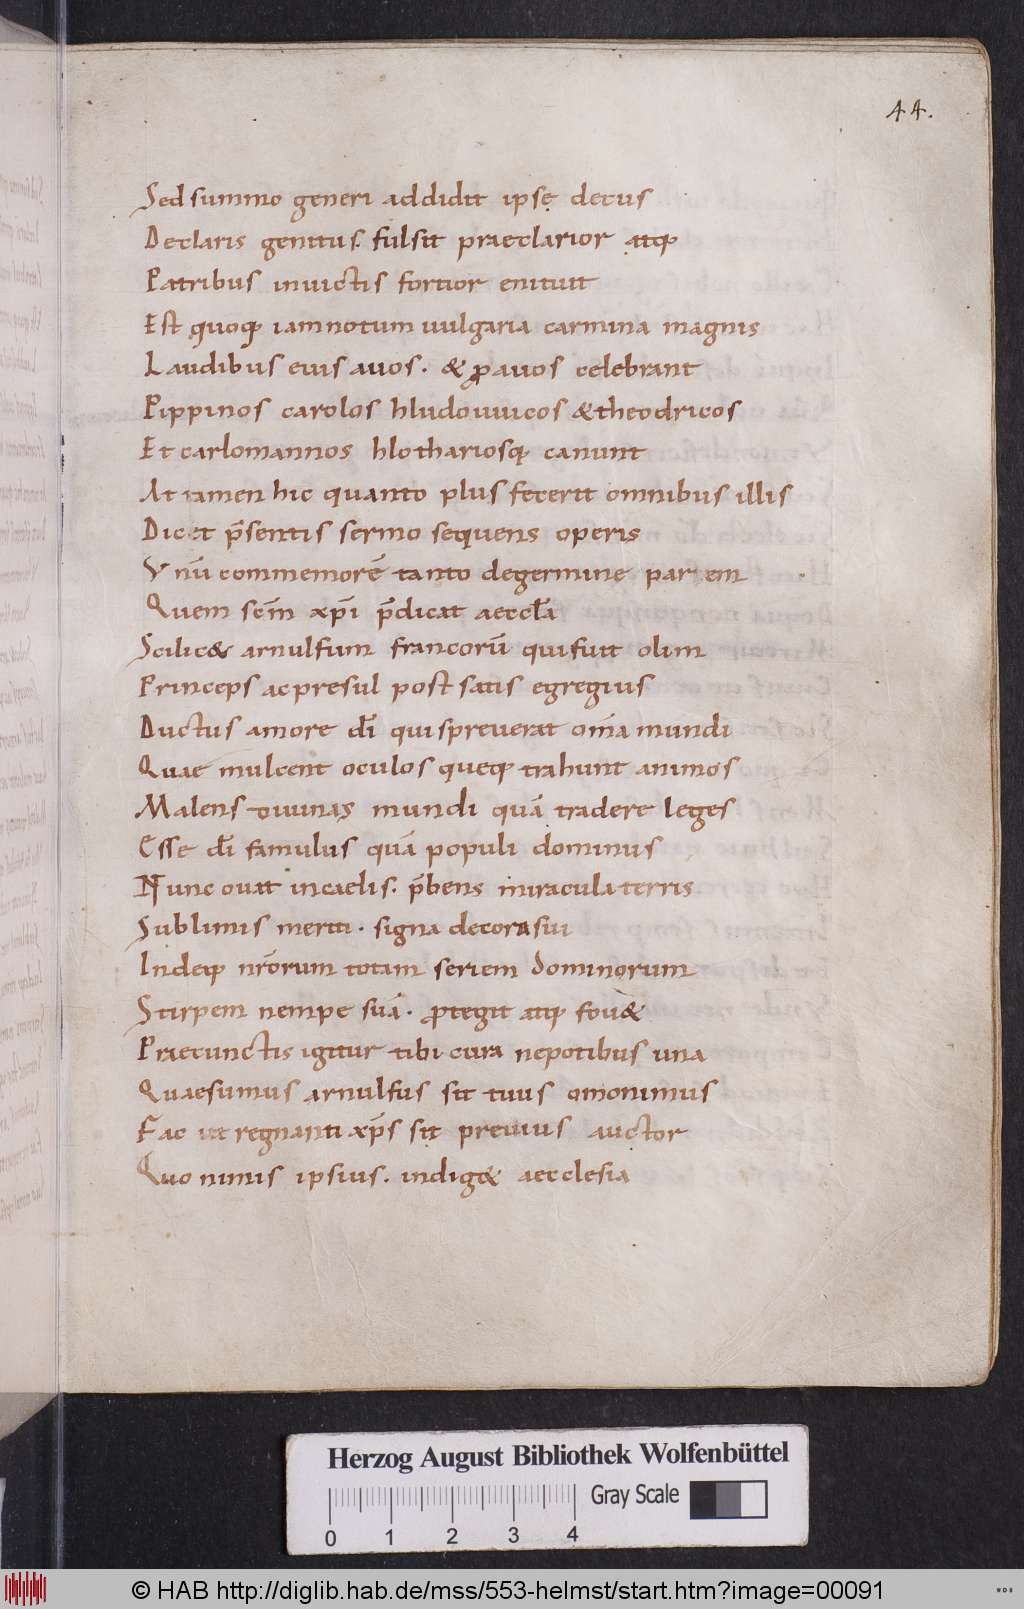 44.
Sed summo generi addidit ipsę decus
De claris genitus. fulsit praeclarior atq;
Patribus inuictis fortior enituit
Est quoq; iam notum uulgaria carmina magnis
Laudibus eius auos. & ꝓauos celebrant
Pippinos carolos hludouuicos & theodricos
Et carlomannos hlothariosq; canunt
At tamen hic quanto plus fecerit omnibus illis
Dicet p̄sentis sermo sequens operis
Vnū commemorē tanto de germine partem
Quem sc̄m xp̄i p̄dicat aeccl̄a
Scilic& arnulfum francorū qui fuit olim
Princeps ac presul post satis egregius
Ductus amore dī qui spreuerat om̄a mundi
Quae mulcent oculos queq; trahunt animos
Malens diuinas mundi quā tradere leges
Esse dī famulus quā populi dominus
Nunc ouat in caelis. p̄bens miracula terris
Sublimis meriti. signa decora sui
Indeq; nr̄orum totam seriem dominorum
Stirpem nempe suā. ꝓtegit atq; fou&
Prae cunctis igitur tibi cura nepotibus una
Quaesumus arnulfus sit tuus omonimus
Fac ut regnanti xp̄s sit preuius auctor
Quo nimis ipsius. indig& aecclesia
Herzog August Bibliothek Wolfenbüttel
Gray Scale
0 1 2 3 4
© HAB http://diglib.hab.de/mss/553-helmst/start.htm?image=00091